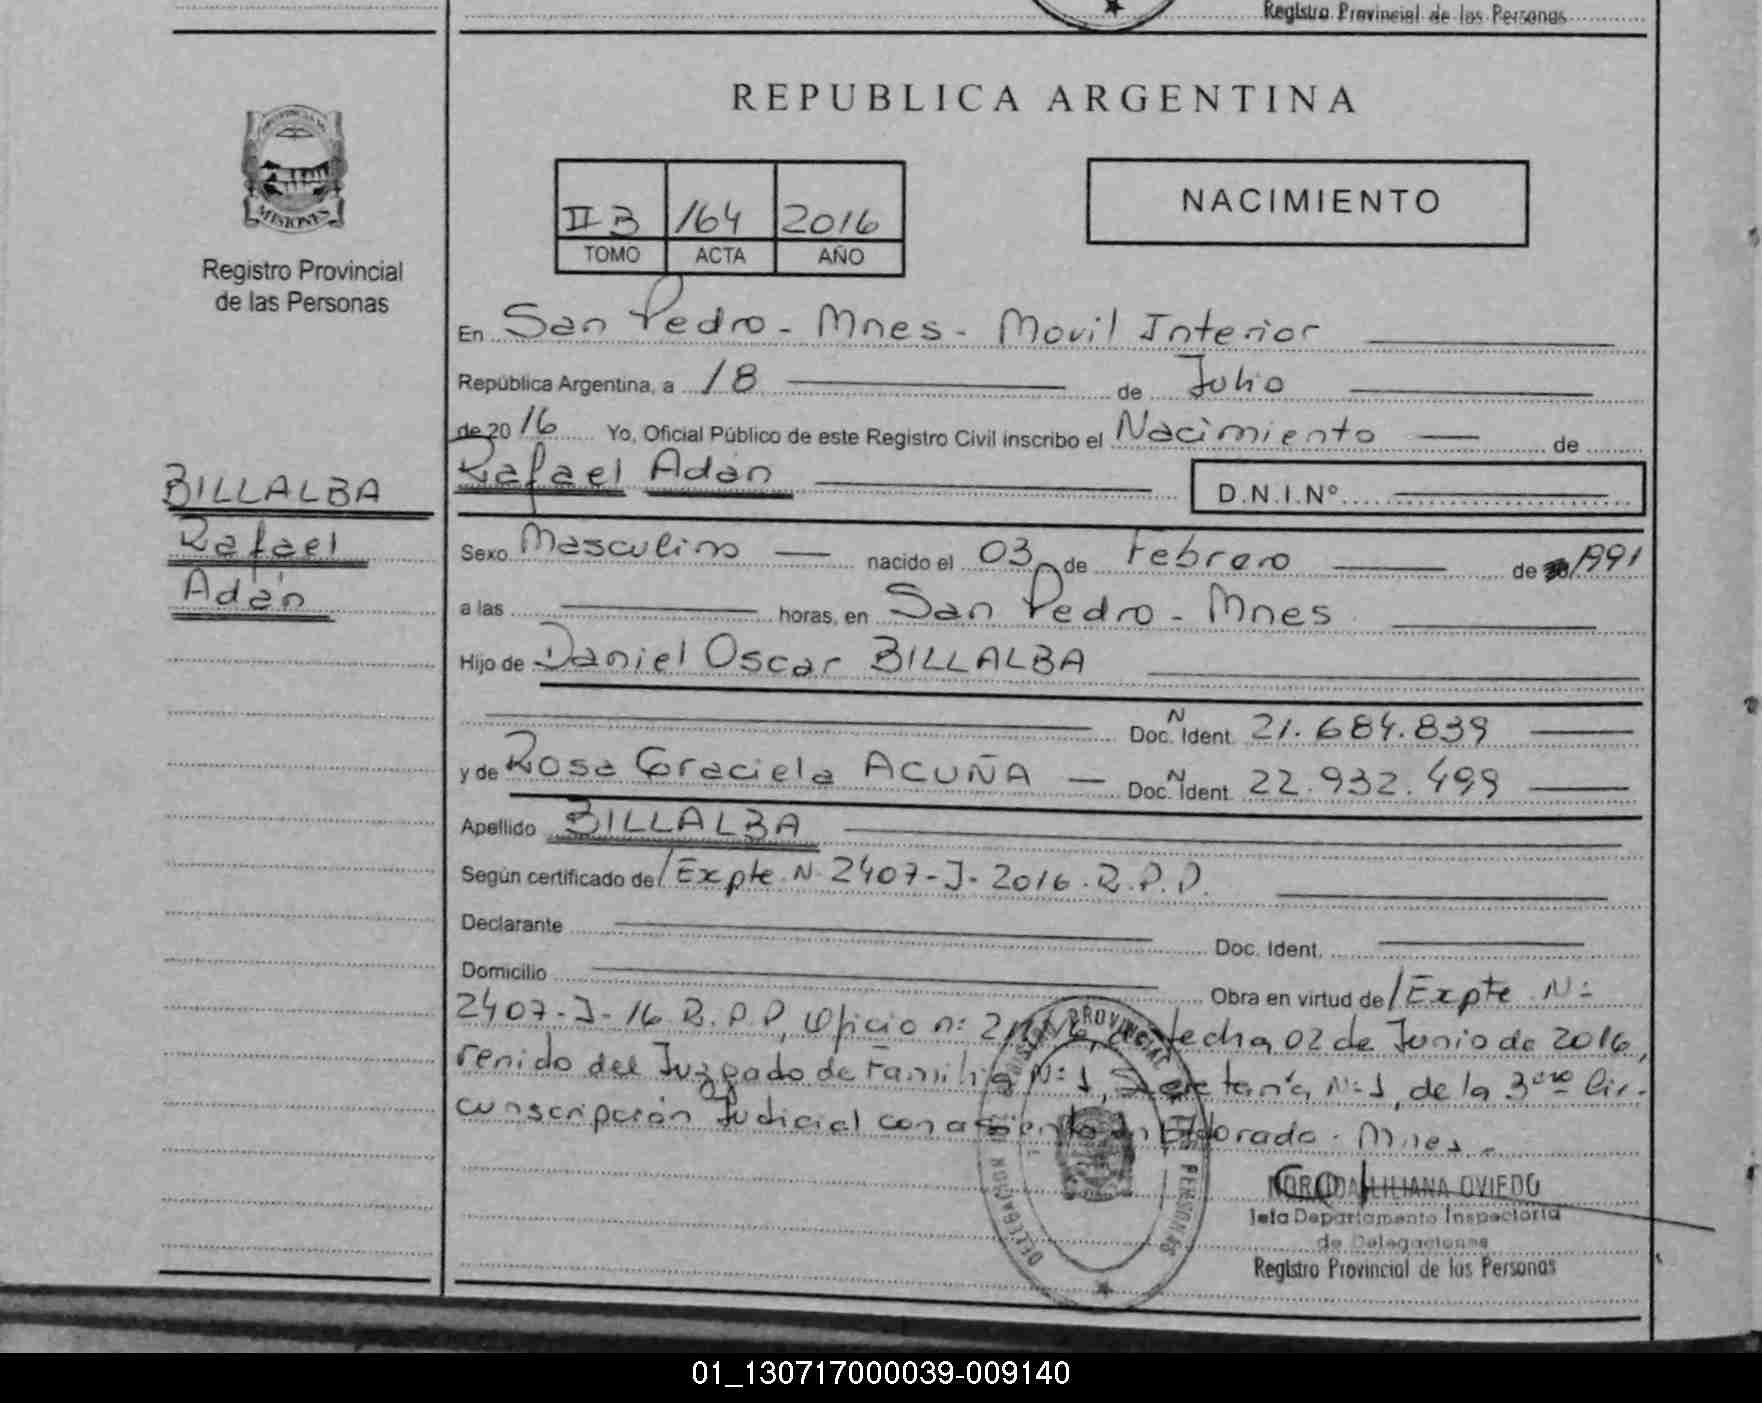 Registro Provincial de las Personas
REPUBLICA ARGENTINA
MISIONES
Registro Provincial
de las Personas
II B 164 2016
TOMO ACTA AÑO
NACIMIENTO
En San Pedro - Mnes - Movil Interior
República Argentina, a 18 de Julio
de 2016 Yo, Oficial Público de este Registro Civil inscribo el Nacimiento de
Rafael Adán
D.N.I.Nº
BILLALBA
Rafael
Adán
Sexo Masculino nacido el 03 de Febrero de 1991
a las horas, en San Pedro - Mnes
Hijo de Daniel Oscar BILLALBA
Doc. Ident. N 21.684.839
y de Rosa Graciela ACUÑA Doc. Ident. N 22.932.499
Apellido BILLALBA
Según certificado de / Expte. N. 2407-J-2016. R.P.P.
Declarante Doc. Ident.
Domicilio Obra en virtud de / Expte. N:
2407-J-16 R.P.P, Oficio n: fecha 02 de Junio de 2016,
renido del Juzgado de Familia N:1, Secretaría N:1, de la 3era Cir-
cunscripción Judicial con asiento en Eldorado. Mnes.-
LILIANA OVIEDO
Jefa Departamento Inspectoría
de Delegaciones
Registro Provincial de las Personas
01_130717000039-009140